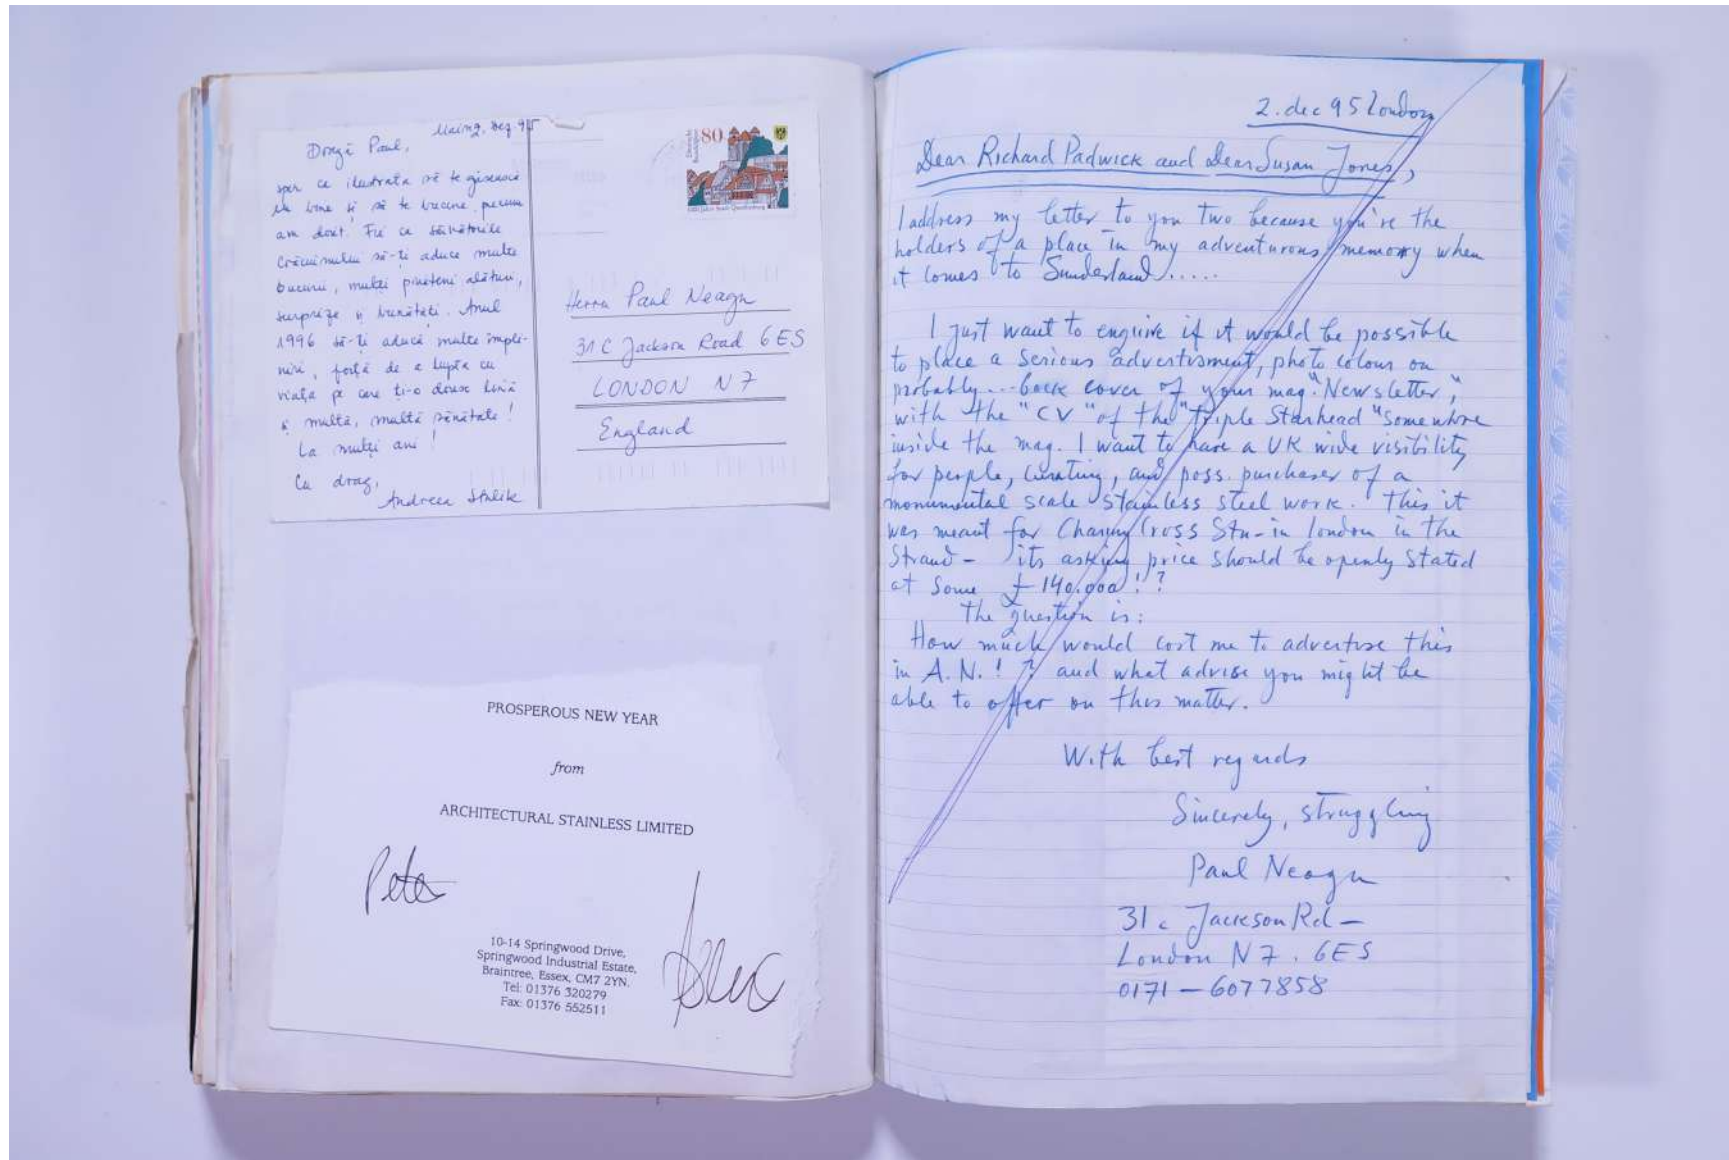 Mainz, Dez 95
Dragă Paul,
sper ca ilustrata să te găsească
cu bine și să te bucure, precum
am dorit. Fie ca sărbătorile
Crăciunului să-ți aducă multe
bucurii, mulți prieteni alături,
surprize și bunătăți. Anul
1996 să-ți aducă multe împli-
niri, forță de a lupta cu
viața pe care ți-o doresc lină
și multă, multă sănătate!
La mulți ani!
Cu drag,
Andreea
80
Herrn Paul Neagu
31 C Jackson Road 6ES
LONDON N7
England
PROSPEROUS NEW YEAR
from
ARCHITECTURAL STAINLESS LIMITED
Peter
10-14 Springwood Drive,
Springwood Industrial Estate,
Braintree, Essex, CM7 2YN.
Tel: 01376 320279
Fax: 01376 552511
2. dec 95 London
Dear Richard Padwick and Dear Susan Jones,
I address my letter to you two because you're the
holders of a place in my adventurous memory when
it comes to Sunderland.....
I just want to enquire if it would be possible
to place a serious advertisment, photo colour on
probably... back cover of your mag. "Newsletter",
with the "CV" of the "Triple Starhead" somewhere
inside the mag. I want to have a UK wide visibility
for people, curating, and poss. purchaser of a
monumental scale stainless steel work. This it
was meant for Charing Cross Stn- in london in the
Strand - its asking price should be openly stated
at some £ 140.000!?
The question is:
How much would cost me to advertise this
in A.N.!? and what advise you might be
able to offer on this matter.
With best regards
Sincerely, struggling
Paul Neagu
31 c Jackson Rd -
London N7. 6ES
0171 - 6077858